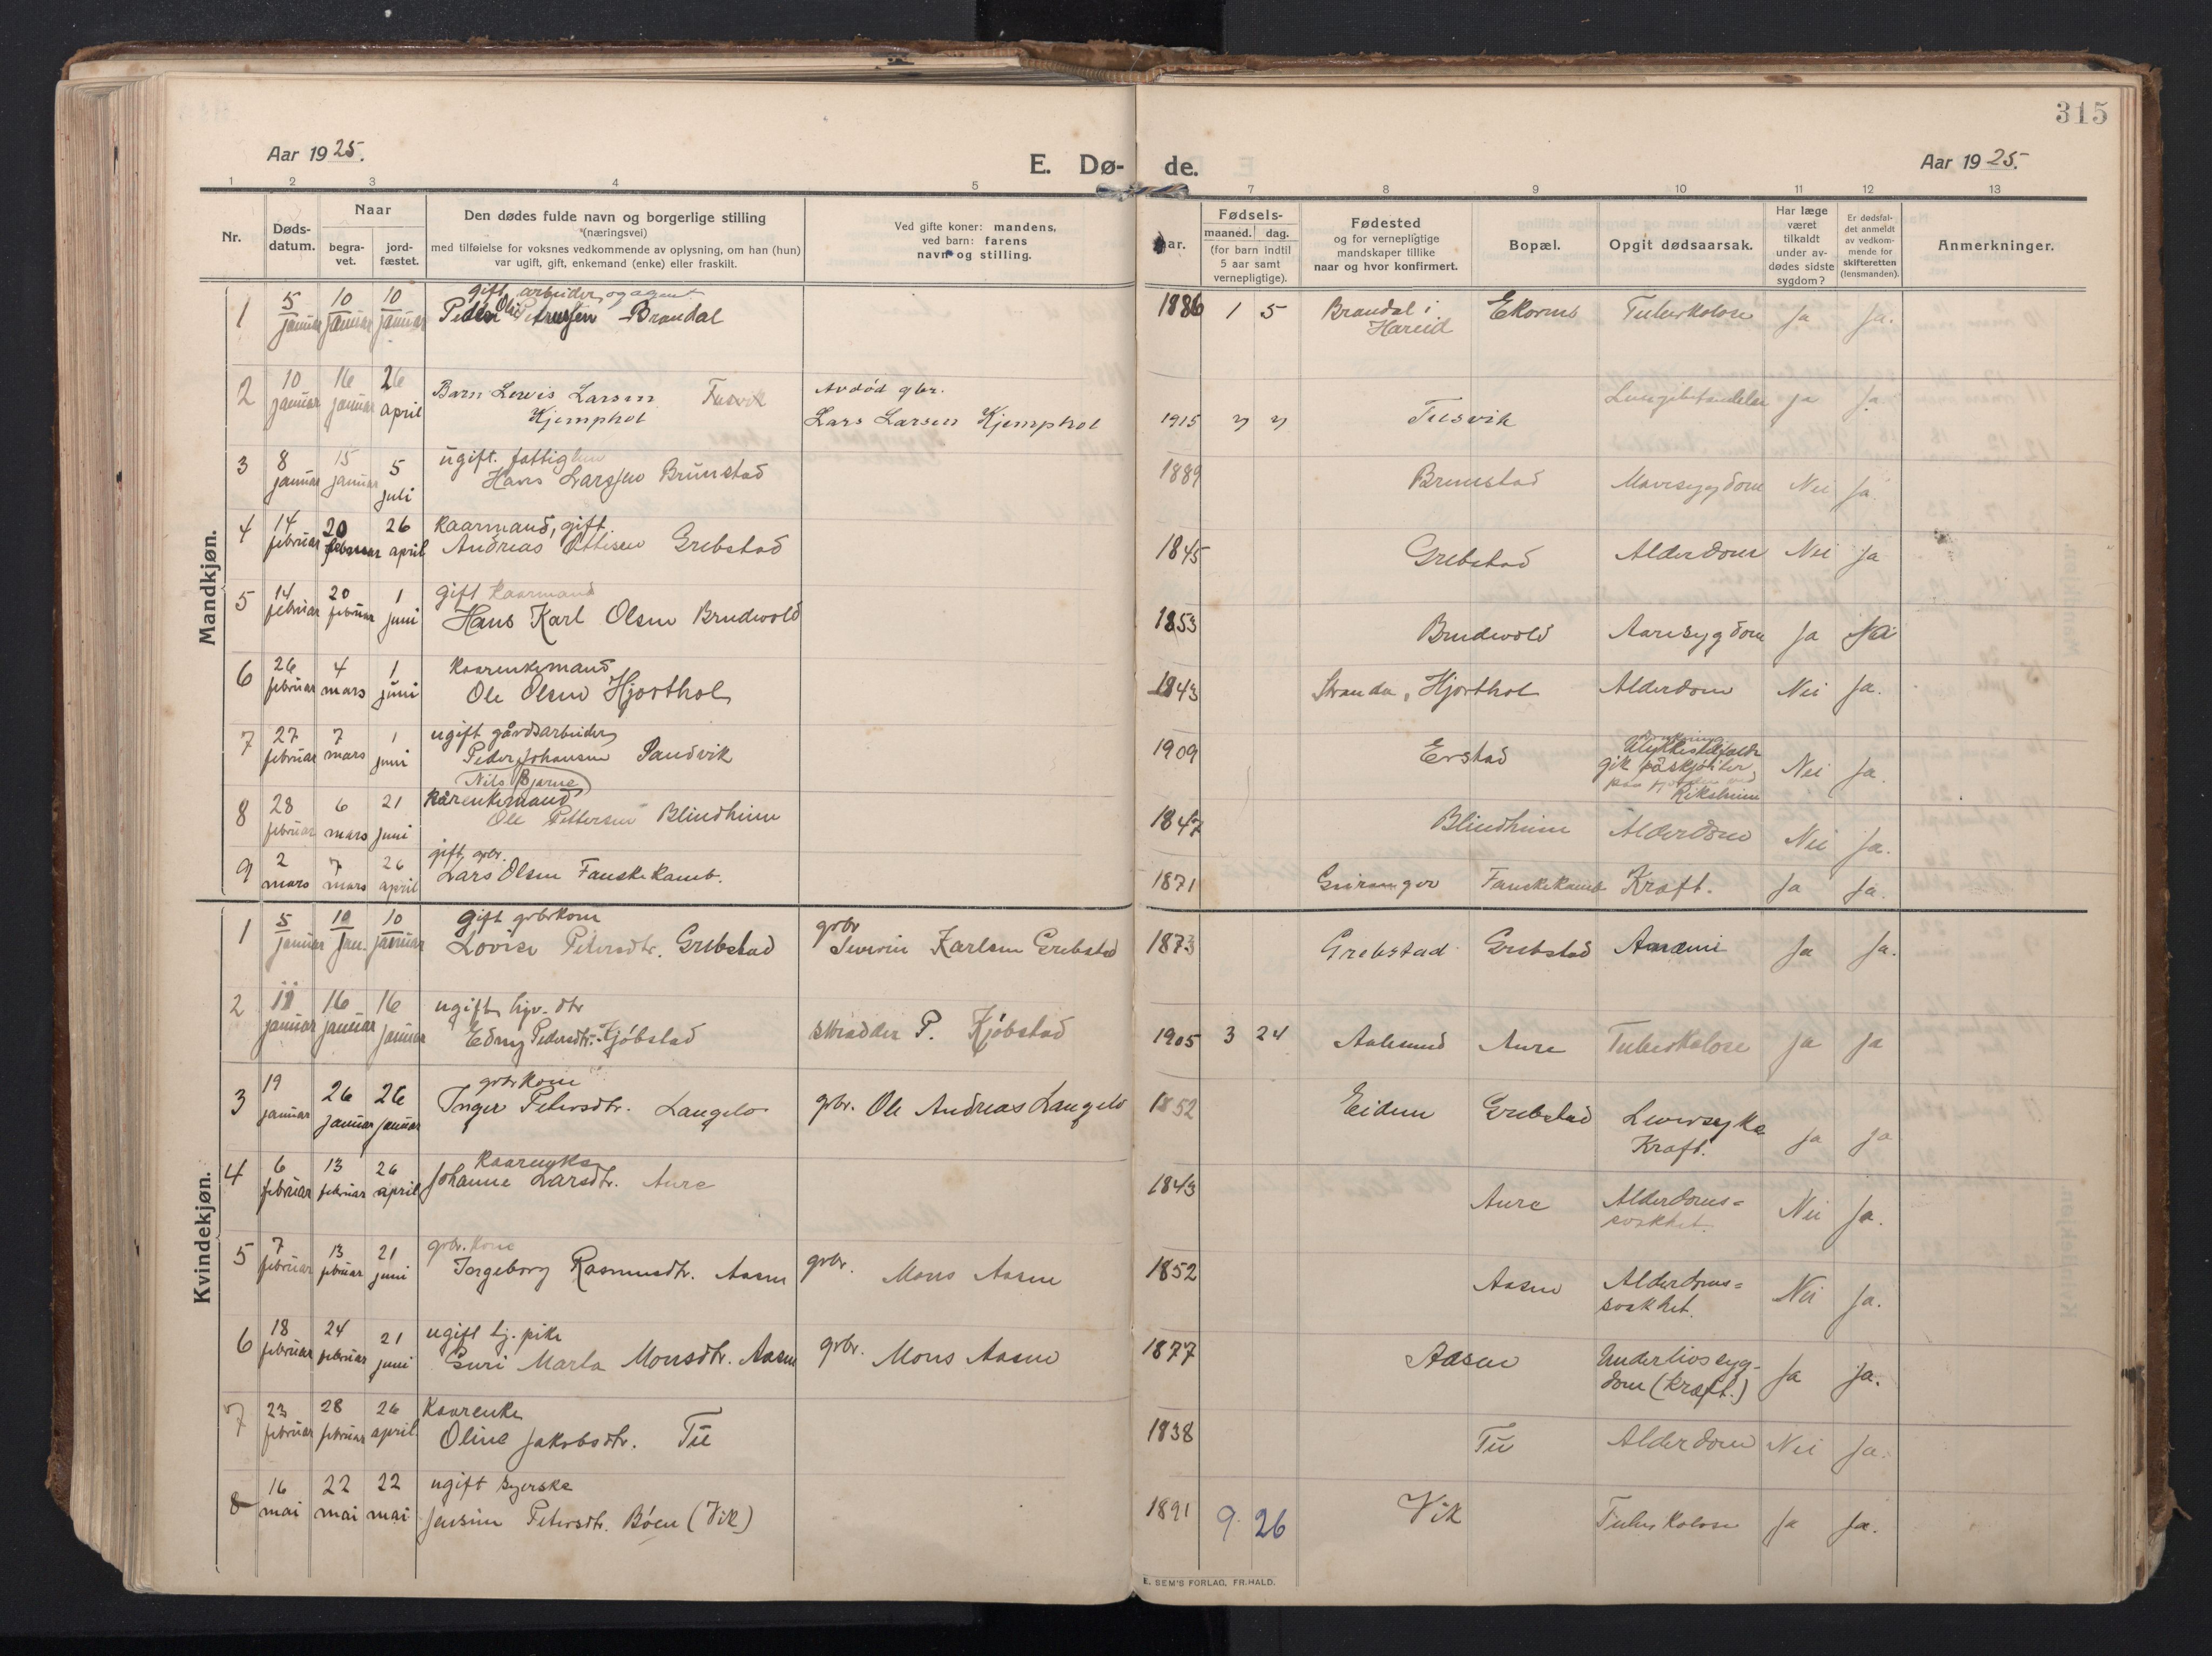 315
Aar 1925.
E. Dø- de.
Aar 1925.
1 2 3 4 5 7 8 9 10 11 12 13
Nr.
Døds-
datum.
Naar
begra-
vet.
jord-
fæstet.
Den dødes fulde navn og borgerlige stilling
(næringsvei)
med tilføielse for voksnes vedkommende av oplysning, om han (hun)
var ugift, gift, enkemand (enke) eller fraskilt.
Ved gifte koner: mandens,
ved barn: farens
navn og stilling.
aar.
Fødsels-
maaned. dag.
(for barn indtil
5 aar samt
vernepligtige).
Fødested
og for vernepligtige
mandskaper tillike
naar og hvor konfirmert.
Bopæl.
Opgit dødsaarsak.
Har læge
været
tilkaldt
under av-
dødes sidste
sygdom?
Er dødsfal-
det anmeldt
av vedkom-
mende for
skifteretten
(lensmanden).
Anmerkninger.
Mandkjøn.
1 5 januar 10 januar 10 januar
gift, arbeider og agent
Peder Ole Petersen Brandal
1886 1 5 Brandal i
Hareid
Ekornes Tuberkolose Ja Ja.
2 10 januar 16 januar 26 april
Barn Lewis Larsen
Kjemphol
Avdød gbr.
Lars Larsen Kjemphol
1915 Tusvik Ja Ja
3 8 januar 15 januar 5 juli
ugift. fattiglem
Hans Larssen Brunstad
1889 Brunstad Mavesygdom Nei Ja.
4 14 februar 20 februar 26 april
Kaarmand, gift
Andreas Ottisen Grebstad
1845 Grebstad Alderdom Nei Ja
5 14 februar 20 februar 1 juni
gift Kaarmand
Hans Karl Olsen Brudevold
1853 Brudevold Aaresygdom Ja Ja
6 26 februar 4 mars 1 juni
Kaarenkemand
Ole Olsen Hjorthol
1843 Stranda, Hjorthol Alderdom Nei Ja.
7 27 februar 7 mars 1 juni
ugift gårdsarbeider
Peder Johansen Sandvik
Nils Bjarne
1909 Erstad
Ulykkestilfælde
gik på skjøiter
paa
Rikheim
Nei Ja.
8 28 februar 6 mars 21 juni
Kårenkemand
Ole Pettersen Blindheim
1847 Blindheim Alderdom Nei Ja.
9 2 mars 7 mars 26 april
gift, gbr.
Lars Olsen Fauskekamb.
1871 Geiranger Fauskekamb Kræft. Ja Ja.
Kvindekjøn.
1 5 januar 10 jan. 10 januar
gift grbrkone
Lovise Petersdtr. Grebstad
grbr
Severin Karlsen Grebstad
1873 Grebstad Grebstad Anæmi Ja Ja.
2 11 januar 16 januar 16 januar
ugift hjv. dtr
Edny Pedersdtr. Kjøbstad
skrædder P. Kjøbstad
1905 3 24 Aalesund Aure Tuberkolose Ja Ja
3 19 januar 26 januar 26 januar
grbrkone
Inger Petersdtr. Langelo
grbr. Ole Andreas Langelo
1852 Eidem Grebstad Leversyke
Kræft.
Ja Ja
4 6 februar 13 februar 26 april
Kaarenke
Johanne Larsdtr. Aure
1843 Aure Alderdoms=
svakhet.
Nei Ja.
5 7 februar 13 februar 21 juni
grbr. kone
Ingeborg Rasmusdtr. Aasen
grbr. Mons Aasen
1852 Aasen Alderdoms=
svakhet.
Nei Ja.
6 18 februar 24 februar 21 juni
ugift hj. pike
Guri Marta Monsdtr. Aasen
grbr. Mons Aasen
1877 Aasen Underlivssyg-
dom (kræft.)
Ja Ja.
7 23 februar 28 februar 26 april
Kaarenke
Oline Jakobsdtr. Tu
1838 Tu Alderdom Nei Ja.
8 16 mai 22 mai 22 mai
ugift syerske
Jensine Petersdtr. Bøen (Vik)
1891 9. 26 Vik Tuberkolose Ja Ja.
E. SEM'S FORLAG, FR.HALD.